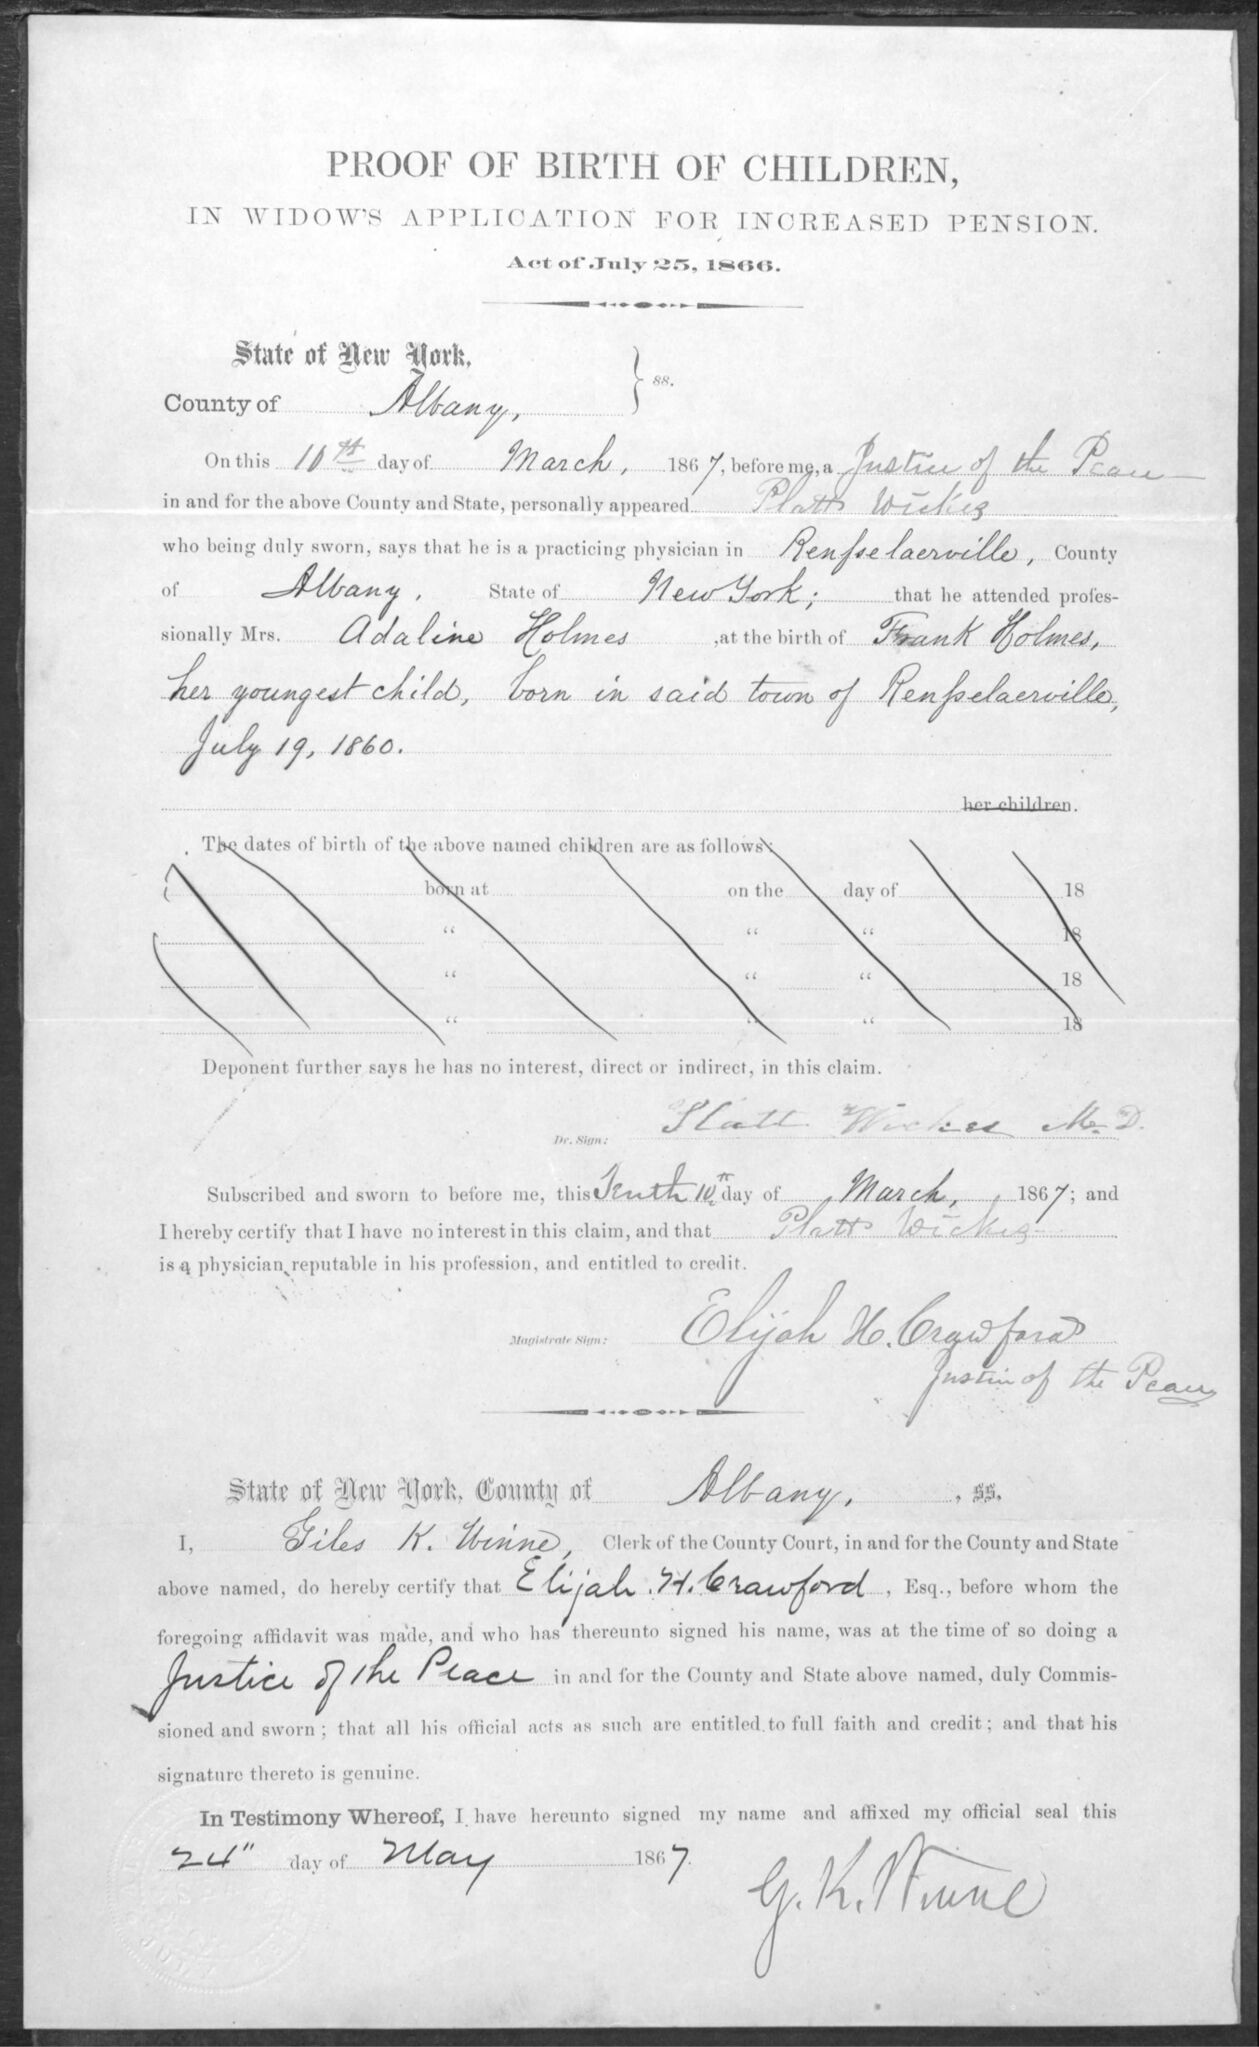 PROOF OF BIRTH OF CHILDREN,
IN WIDOW'S APPLICATION FOR INCREASED PENSION.
Act of July 25, 1866.
State of New York,
County of Albany, } ss.
On this 10th day of March, 1867, before me, a Justice of the Peace
in and for the above County and State, personally appeared Platt Wickes
who being duly sworn, says that he is a practicing physician in Renſselaerville, County
of Albany, State of New York; that he attended profes-
sionally Mrs. Adaline Holmes, at the birth of Frank Holmes,
her youngest child, born in said town of Renſselaerville,
July 19, 1860.
her children.
The dates of birth of the above named children are as follows:
born at on the day of 18
“ “ “ 18
“ “ “ 18
“ “ “ 18
Deponent further says he has no interest, direct or indirect, in this claim.
Dr. Sign: Platt Wickes M.D.
Subscribed and sworn to before me, this Tenth 10th day of March, 1867; and
I hereby certify that I have no interest in this claim, and that Platt Wickes
is a physician reputable in his profession, and entitled to credit.
Magistrate Sign: Elijah H. Crawford
Justice of the Peace
State of New York, County of Albany, ss.
I, Giles K. Winne, Clerk of the County Court, in and for the County and State
above named, do hereby certify that Elijah H. Crawford, Esq., before whom the
foregoing affidavit was made, and who has thereunto signed his name, was at the time of so doing a
Justice of the Peace in and for the County and State above named, duly Commis-
sioned and sworn; that all his official acts as such are entitled to full faith and credit; and that his
signature thereto is genuine.
In Testimony Whereof, I have hereunto signed my name and affixed my official seal this
24" day of May 1867.
G. K. Winne